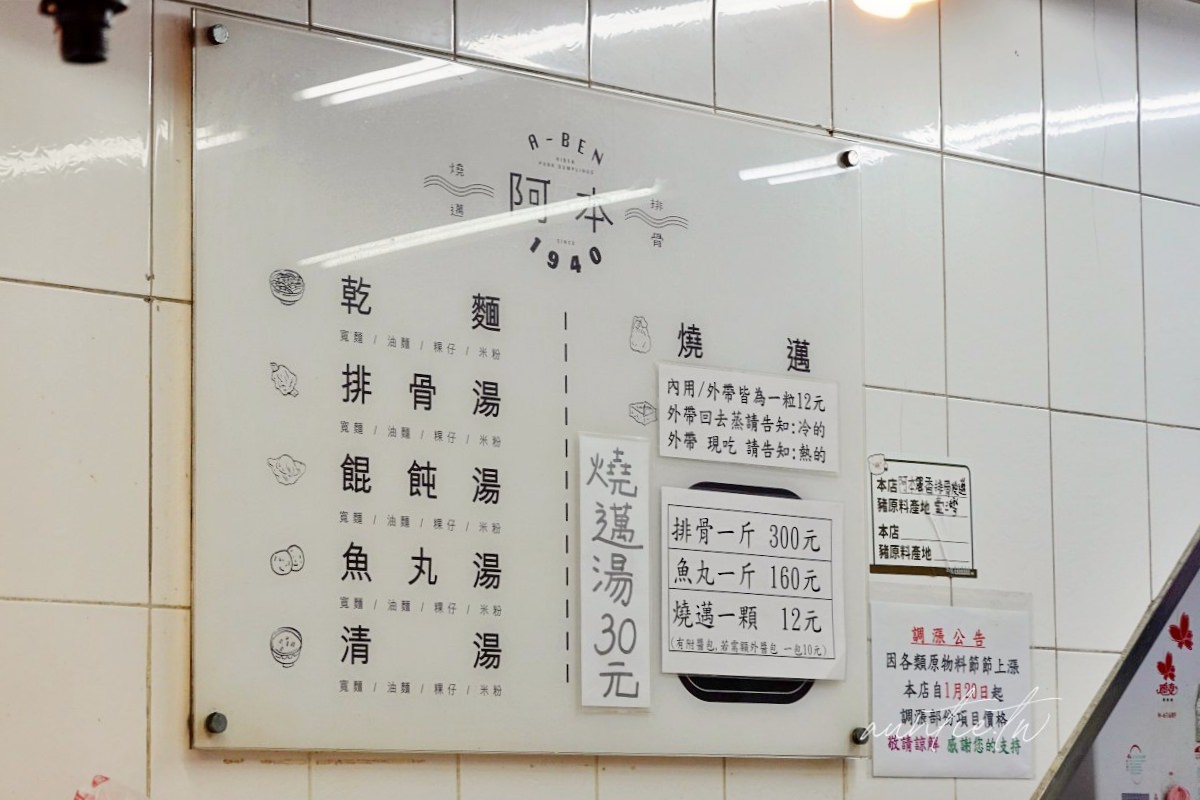 A-BEN
阿本
燒邁
排骨
SINCE
1940
乾麵
寬麵 / 油麵 / 粿仔 / 米粉
排骨湯
寬麵 / 油麵 / 粿仔 / 米粉
餛飩湯
寬麵 / 油麵 / 粿仔 / 米粉
魚丸湯
寬麵 / 油麵 / 粿仔 / 米粉
清湯
寬麵 / 油麵 / 粿仔 / 米粉
燒邁
內用/外帶皆為一粒12元
外帶回去蒸請告知:冷的
外帶 現吃 請告知:熱的
燒邁湯30元
排骨一斤 300元
魚丸一斤 160元
燒邁一顆 12元
(有附醬包,若需額外醬包 一包10元)
本店阿本
豬原料產地 台灣
本店
豬原料產地
調漲公告
因各類原物料節節上漲
本店自1月20日起
調漲部份項目價格
敬請諒解 感謝您的支持
auntie.tw